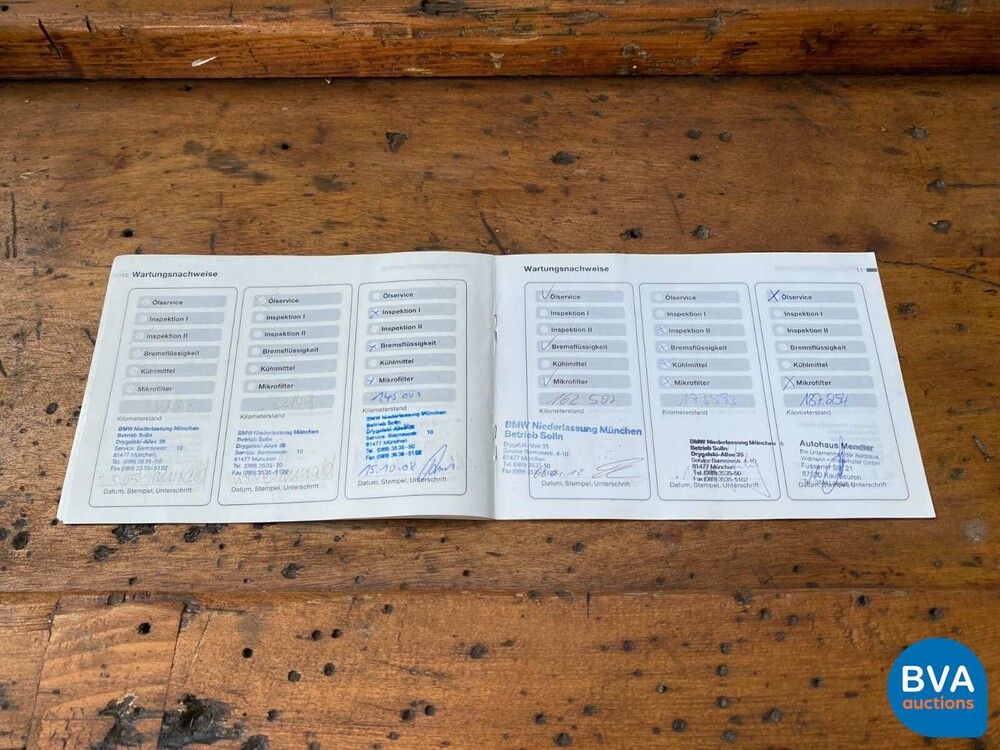 10 Wartungsnachweise
Ölservice
Inspektion I
Inspektion II
Bremsflüssigkeit
Kühlmittel
Mikrofilter
Kilometerstand
BMW Niederlassung München
Betrieb Solln
Drygalski-Allee 35
81477 München
Tel. (089) 3535-50
Fax (089) 3535-5102
Datum, Stempel, Unterschrift
Ölservice
Inspektion I
Inspektion II
Bremsflüssigkeit
Kühlmittel
Mikrofilter
Kilometerstand
BMW Niederlassung München
Betrieb Solln
Drygalski-Allee 35
81477 München
Tel. (089) 3535-50
Fax (089) 3535-5102
Datum, Stempel, Unterschrift
Ölservice
Inspektion I
Inspektion II
Bremsflüssigkeit
Kühlmittel
Mikrofilter
145 003
Kilometerstand
BMW Niederlassung München
Betrieb Solln
Drygalski-Allee 35
81477 München
Tel. (089) 3535-50
Fax (089) 3535-5102
15.10.08
Datum, Stempel, Unterschrift
Wartungsnachweise 11
Ölservice
Inspektion I
Inspektion II
Bremsflüssigkeit
Kühlmittel
Mikrofilter
162 592
Kilometerstand
BMW Niederlassung München
Betrieb Solln
Drygalski-Allee 35
Service: Barmseestr. 4-10
81477 München
Tel. (089) 3535-50
Datum, Stempel, Unterschrift
Ölservice
Inspektion I
Inspektion II
Bremsflüssigkeit
Kühlmittel
Mikrofilter
173593
Kilometerstand
BMW Niederlassung München
Betrieb Solln
Drygalski-Allee 35
Service Barmseestr. 4-10
81477 München
Tel. (089) 3535-50
Fax (089) 3535-5102
Datum, Stempel, Unterschrift
Ölservice
Inspektion I
Inspektion II
Bremsflüssigkeit
Kühlmittel
Mikrofilter
187.854
Kilometerstand
Autohaus Mendler
Ein Unternehmen der Autohaus
Widmann + Winterholler GmbH
Füssener Str. 21
87600 Kaufbeuren
Datum, Stempel, Unterschrift
BVA
auctions